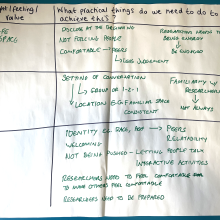 t/feeling/
value
What practical things do we need to do to
achieve this?
FE
SPACE
DECLARE AT THE BEGINNING
NOT FEELING PEOPLE
COMFORTABLE → PEERS
↳ LESS JUDGEMENT
BE
ENGAGED
SETTING OF CONVERSATION
↳ GROUP OR 1-2-1
↳ LOCATION E.G. FAMILIAR SPACE
CONSISTENT
FAMILIARITY
RESEARCHER
↳ NOT
ALWAYS
IDENTITY E.G. RACE, → PEERS
RELATABILITY
WELCOMING
NOT BEING PUSHED - LETTING PEOPLE TALK
INTERACTIVE ACTIVITIES
RESEARCHERS NEED TO FEEL COMFORTABLE
TO MAKE OTHERS FEEL COMFORTABLE
RESEARCHERS NEED TO BE PREPARED